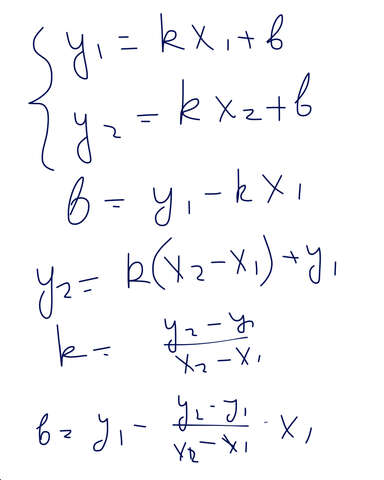 y₁ = kx₁ + b
y₂ = kx₂ + b
b = y₁ - kx₁
y₂ = k(x₂ - x₁) + y₁
k = (y₂ - y₁)/(x₂ - x₁)
b = y₁ - (y₂ - y₁)/(x₂ - x₁) · x₁